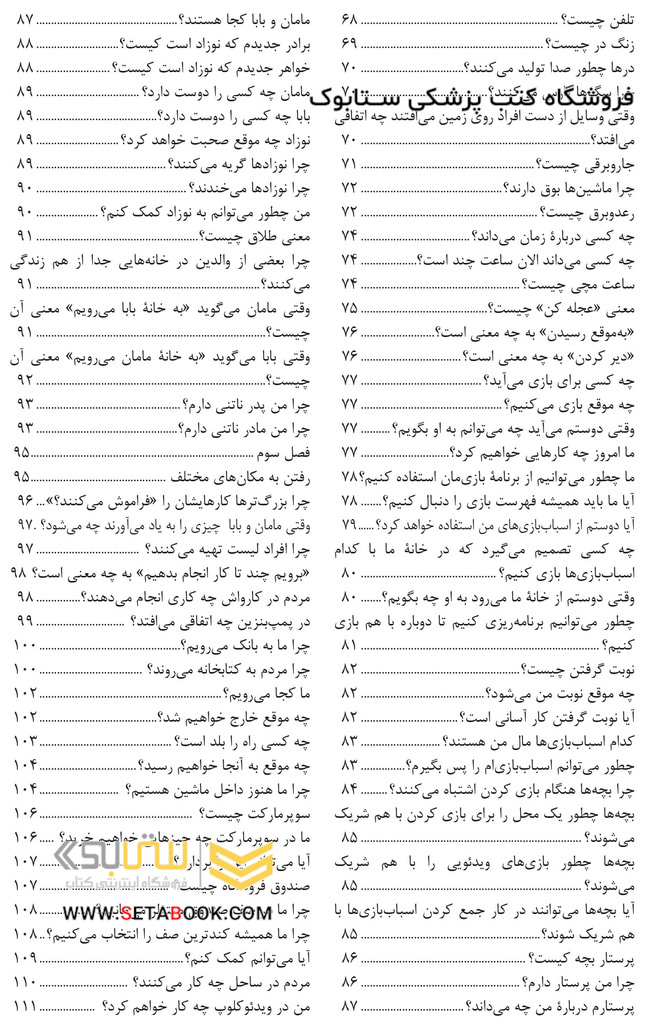 تلفن چیست؟ ۶۸
زنگ در چیست؟ ۶۹
درها چطور صدا تولید می‌کنند؟ ۷۰
فروشگاه کتب پزشکی ستابوک
وقتی وسایل از دست افراد روی زمین می‌افتند چه اتفاقی
می‌افتد؟ ۷۰
جاروبرقی چیست؟ ۷۱
چرا ماشین‌ها بوق دارند؟ ۷۲
رعدوبرق چیست؟ ۷۲
چه کسی دربارهٔ زمان می‌داند؟ ۷۴
چه کسی می‌داند الان ساعت چند است؟ ۷۴
ساعت مچی چیست؟ ۷۴
معنی «عجله کن» چیست؟ ۷۵
«به‌موقع رسیدن» به چه معنی است؟ ۷۶
«دیر کردن» به چه معنی است؟ ۷۶
چه کسی برای بازی می‌آید؟ ۷۷
چه موقع بازی می‌کنیم؟ ۷۷
وقتی دوستم می‌آید چه می‌توانم به او بگویم؟ ۷۷
ما امروز چه کارهایی خواهیم کرد؟ ۷۷
ما چطور می‌توانیم از برنامهٔ بازی‌مان استفاده کنیم؟ ۷۸
آیا ما باید همیشه فهرست بازی را دنبال کنیم؟ ۷۸
آیا دوستم از اسباب‌بازی‌های من استفاده خواهد کرد؟ ۷۹
چه کسی تصمیم می‌گیرد که در خانهٔ ما با کدام
اسباب‌بازی‌ها بازی کنیم؟ ۸۰
وقتی دوستم از خانهٔ ما می‌رود به او چه بگویم؟ ۸۰
چطور می‌توانیم برنامه‌ریزی کنیم تا دوباره با هم بازی
کنیم؟ ۸۱
نوبت گرفتن چیست؟ ۸۲
چه موقع نوبت من می‌شود؟ ۸۲
آیا نوبت گرفتن کار آسانی است؟ ۸۲
کدام اسباب‌بازی‌ها مال من هستند؟ ۸۳
چطور می‌توانم اسباب‌بازی‌ام را پس بگیرم؟ ۸۳
چرا بچه‌ها هنگام بازی کردن اشتباه می‌کنند؟ ۸۴
بچه‌ها چطور یک محل را برای بازی کردن با هم شریک
می‌شوند؟ ۸۵
بچه‌ها چطور بازی‌های ویدئویی را با هم شریک
می‌شوند؟ ۸۵
آیا بچه‌ها می‌توانند در کار جمع کردن اسباب‌بازی‌ها با
هم شریک شوند؟ ۸۵
پرستار بچه کیست؟ ۸۶
چرا من پرستار دارم؟ ۸۶
پرستارم دربارهٔ من چه می‌داند؟ ۸۷
مامان و بابا کجا هستند؟ ۸۷
برادر جدیدم که نوزاد است کیست؟ ۸۸
خواهر جدیدم که نوزاد است کیست؟ ۸۸
مامان چه کسی را دوست دارد؟ ۸۹
بابا چه کسی را دوست دارد؟ ۸۹
نوزاد چه موقع صحبت خواهد کرد؟ ۸۹
چرا نوزادها گریه می‌کنند؟ ۸۹
چرا نوزادها می‌خندند؟ ۹۰
من چطور می‌توانم به نوزاد کمک کنم؟ ۹۰
معنی طلاق چیست؟ ۹۱
چرا بعضی از والدین در خانه‌هایی جدا از هم زندگی
می‌کنند؟ ۹۱
وقتی مامان می‌گوید «به خانهٔ بابا می‌رویم» معنی آن
چیست؟ ۹۱
وقتی بابا می‌گوید «به خانهٔ مامان می‌رویم» معنی آن
چیست؟ ۹۲
چرا من پدر ناتنی دارم؟ ۹۳
چرا من مادر ناتنی دارم؟ ۹۳
فصل سوم ۹۵
رفتن به مکان‌های مختلف ۹۵
چرا بزرگ‌ترها کارهایشان را «فراموش می‌کنند؟» ۹۶
وقتی مامان و بابا چیزی را به یاد می‌آورند چه می‌شود؟ ۹۷
چرا افراد لیست تهیه می‌کنند؟ ۹۷
«برویم چند تا کار انجام بدهیم» به چه معنی است؟ ۹۸
مردم در کارواش چه کاری انجام می‌دهند؟ ۹۸
در پمپ‌بنزین چه اتفاقی می‌افتد؟ ۹۹
چرا ما به بانک می‌رویم؟ ۱۰۰
چرا مردم به کتابخانه می‌روند؟ ۱۰۰
ما کجا می‌رویم؟ ۱۰۲
چه موقع خارج خواهیم شد؟ ۱۰۲
چه کسی راه را بلد است؟ ۱۰۳
چه موقع به آنجا خواهیم رسید؟ ۱۰۴
چرا ما هنوز داخل ماشین هستیم؟ ۱۰۴
سوپرمارکت چیست؟ ۱۰۶
ما در سوپرمارکت چه چیزهایی خواهیم خرید؟ ۱۰۶
آیا ۱۰۷
ستابوک
صندوق فروشگاه چیست؟ ۱۰۷
فروشگاه اینترنتی کتاب
چرا ما ۱۰۸
WWW.SETABOOK.COM
چرا ما همیشه کندترین صف را انتخاب می‌کنیم؟ ۱۰۸
آیا می‌توانم کمک کنم؟ ۱۰۹
مردم در ساحل چه کار می‌کنند؟ ۱۱۰
من در ویدئوکلوپ چه کار خواهم کرد؟ ۱۱۱